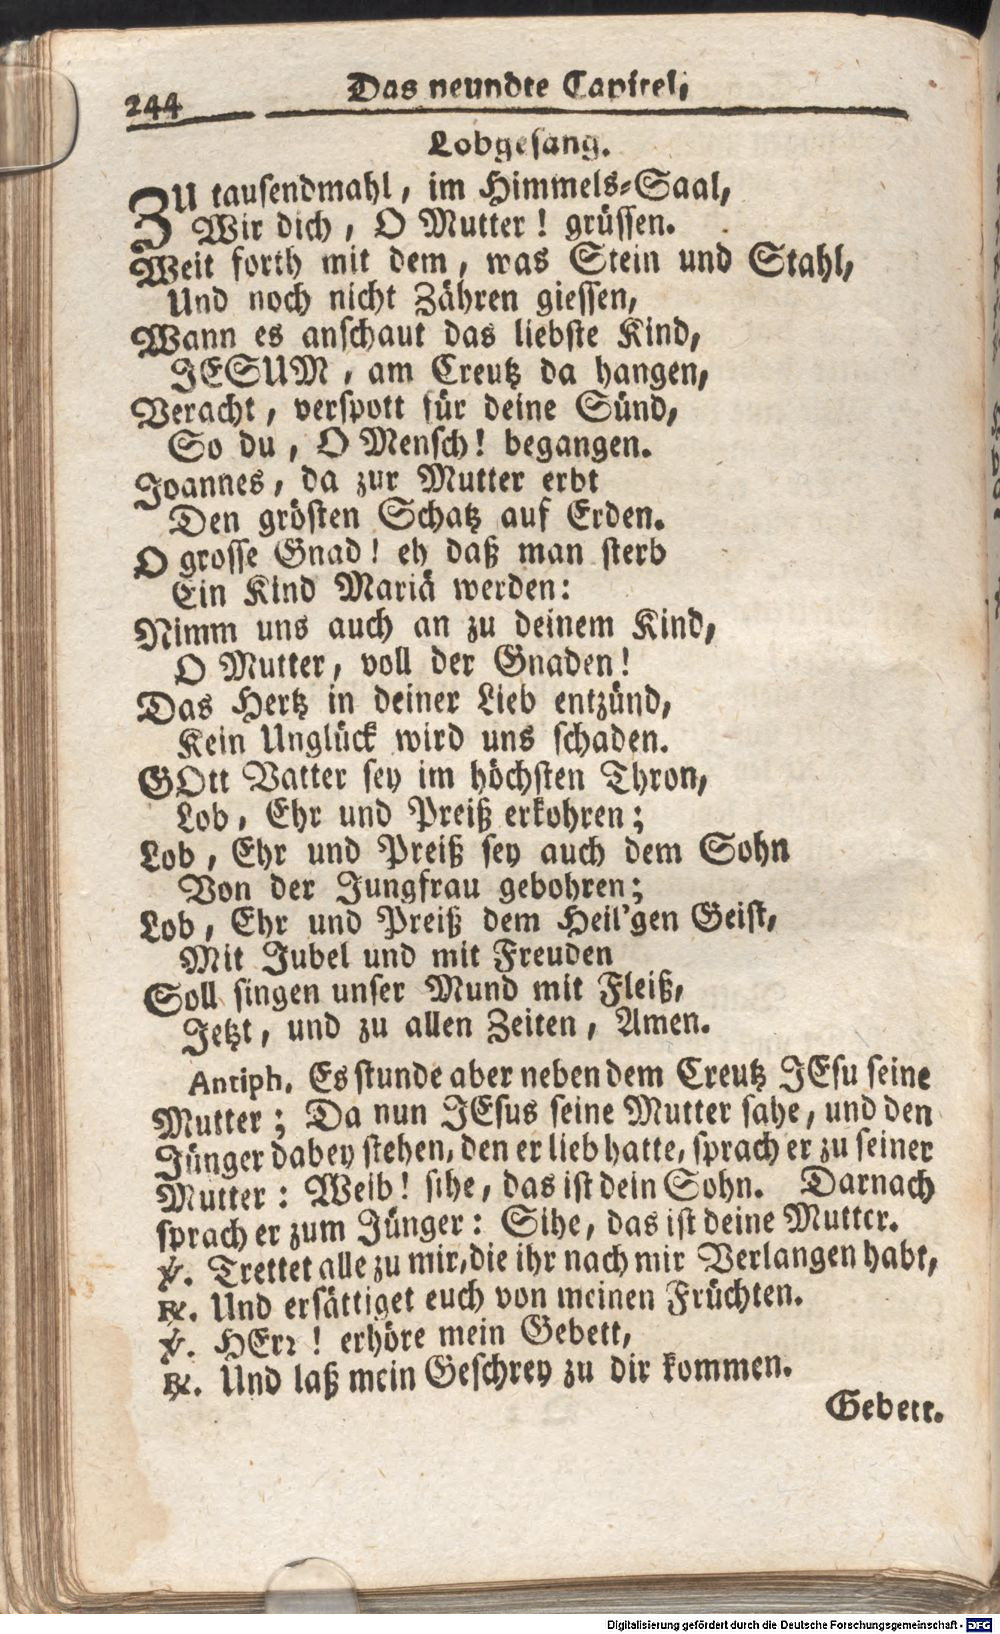 244
Das neundte Capitel,
Lobgesang.
ZU tausendmahl, im Himmels-Saal,
Wir dich, O Mutter! grüssen.
Weit forth mit dem, was Stein und Stahl,
Und noch nicht Zähren giessen,
Wann es anschaut das liebste Kind,
JESUM, am Creutz da hangen,
Veracht, verspott für deine Sünd,
So du, O Mensch! begangen.
Joannes, da zur Mutter erbt
Den grösten Schatz auf Erden.
O grosse Gnad! eh daß man sterb
Ein Kind Mariä werden:
Nimm uns auch an zu deinem Kind,
O Mutter, voll der Gnaden!
Das Hertz in deiner Lieb entzünd,
Kein Unglück wird uns schaden.
GOtt Vatter sey im höchsten Thron,
Lob, Ehr und Preiß erkohren;
Lob, Ehr und Preiß sey auch dem Sohn
Von der Jungfrau gebohren;
Lob, Ehr und Preiß dem Heil'gen Geist,
Mit Jubel und mit Freuden
Soll singen unser Mund mit Fleiß,
Jetzt, und zu allen Zeiten, Amen.
Antiph. Es stunde aber neben dem Creutz JEsu seine
Mutter; Da nun JEsus seine Mutter sahe, und den
Jünger dabey stehen, den er lieb hatte, sprach er zu seiner
Mutter: Weib! sihe, das ist dein Sohn. Darnach
sprach er zum Jünger: Sihe, das ist deine Mutter.
℣. Trettet alle zu mir, die ihr nach mir Verlangen habt,
℟. Und ersättiget euch von meinen Früchten.
℣. HErr! erhöre mein Gebett,
℟. Und laß mein Geschrey zu dir kommen.
Gebett.
Digitalisierung gefördert durch die Deutsche Forschungsgemeinschaft - DFG